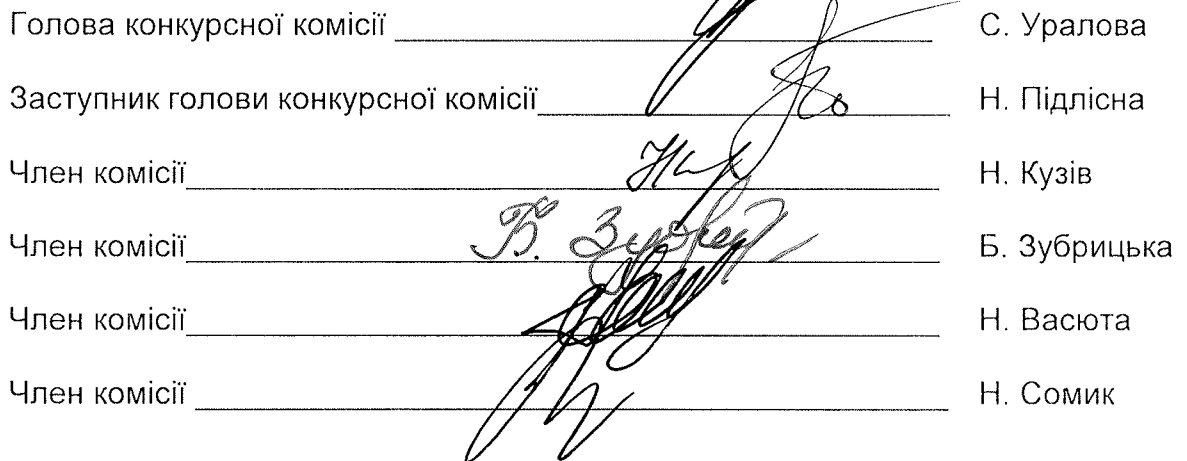 Голова конкурсної комісії С. Уралова
Заступник голови конкурсної комісії Н. Підлісна
Член комісії Н. Кузів
Член комісії Б. Зубрицька
Член комісії Н. Васюта
Член комісії Н. Сомик